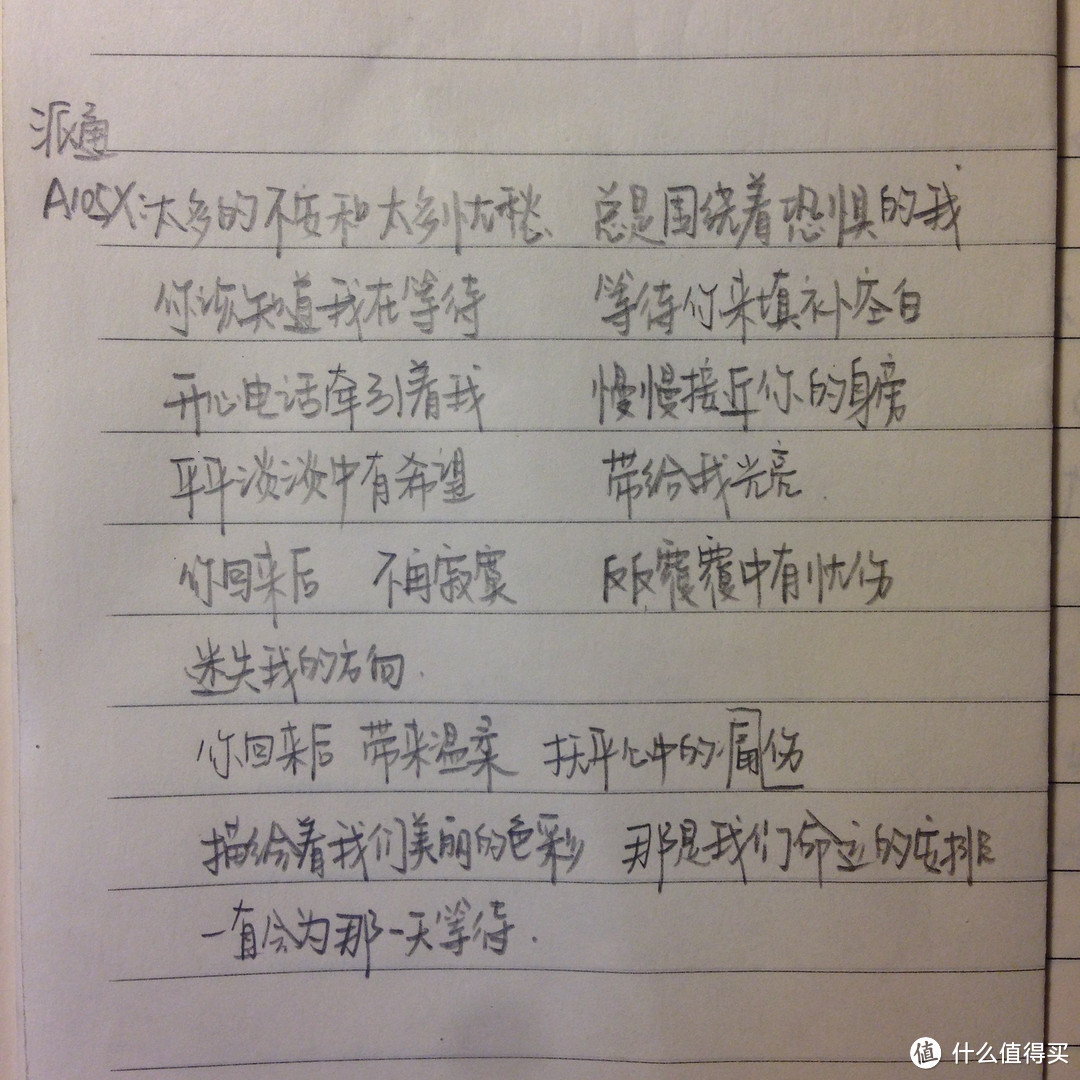 派通
A105X:太多的不安和太多忧愁 总是围绕着恐惧的我
你该知道我在等待 等待你来填补空白
开心电话牵引着我 慢慢接近你的身旁
平平淡淡中有希望 带给我光亮.
你回来后 不再寂寞 反反覆覆中有忧伤
迷失我的方向.
你回来后 带来温柔 抚平心中的 伤
描绘着我们美丽的色彩 那是我们命定的安排
一直会为那一天等待.
值 什么值得买